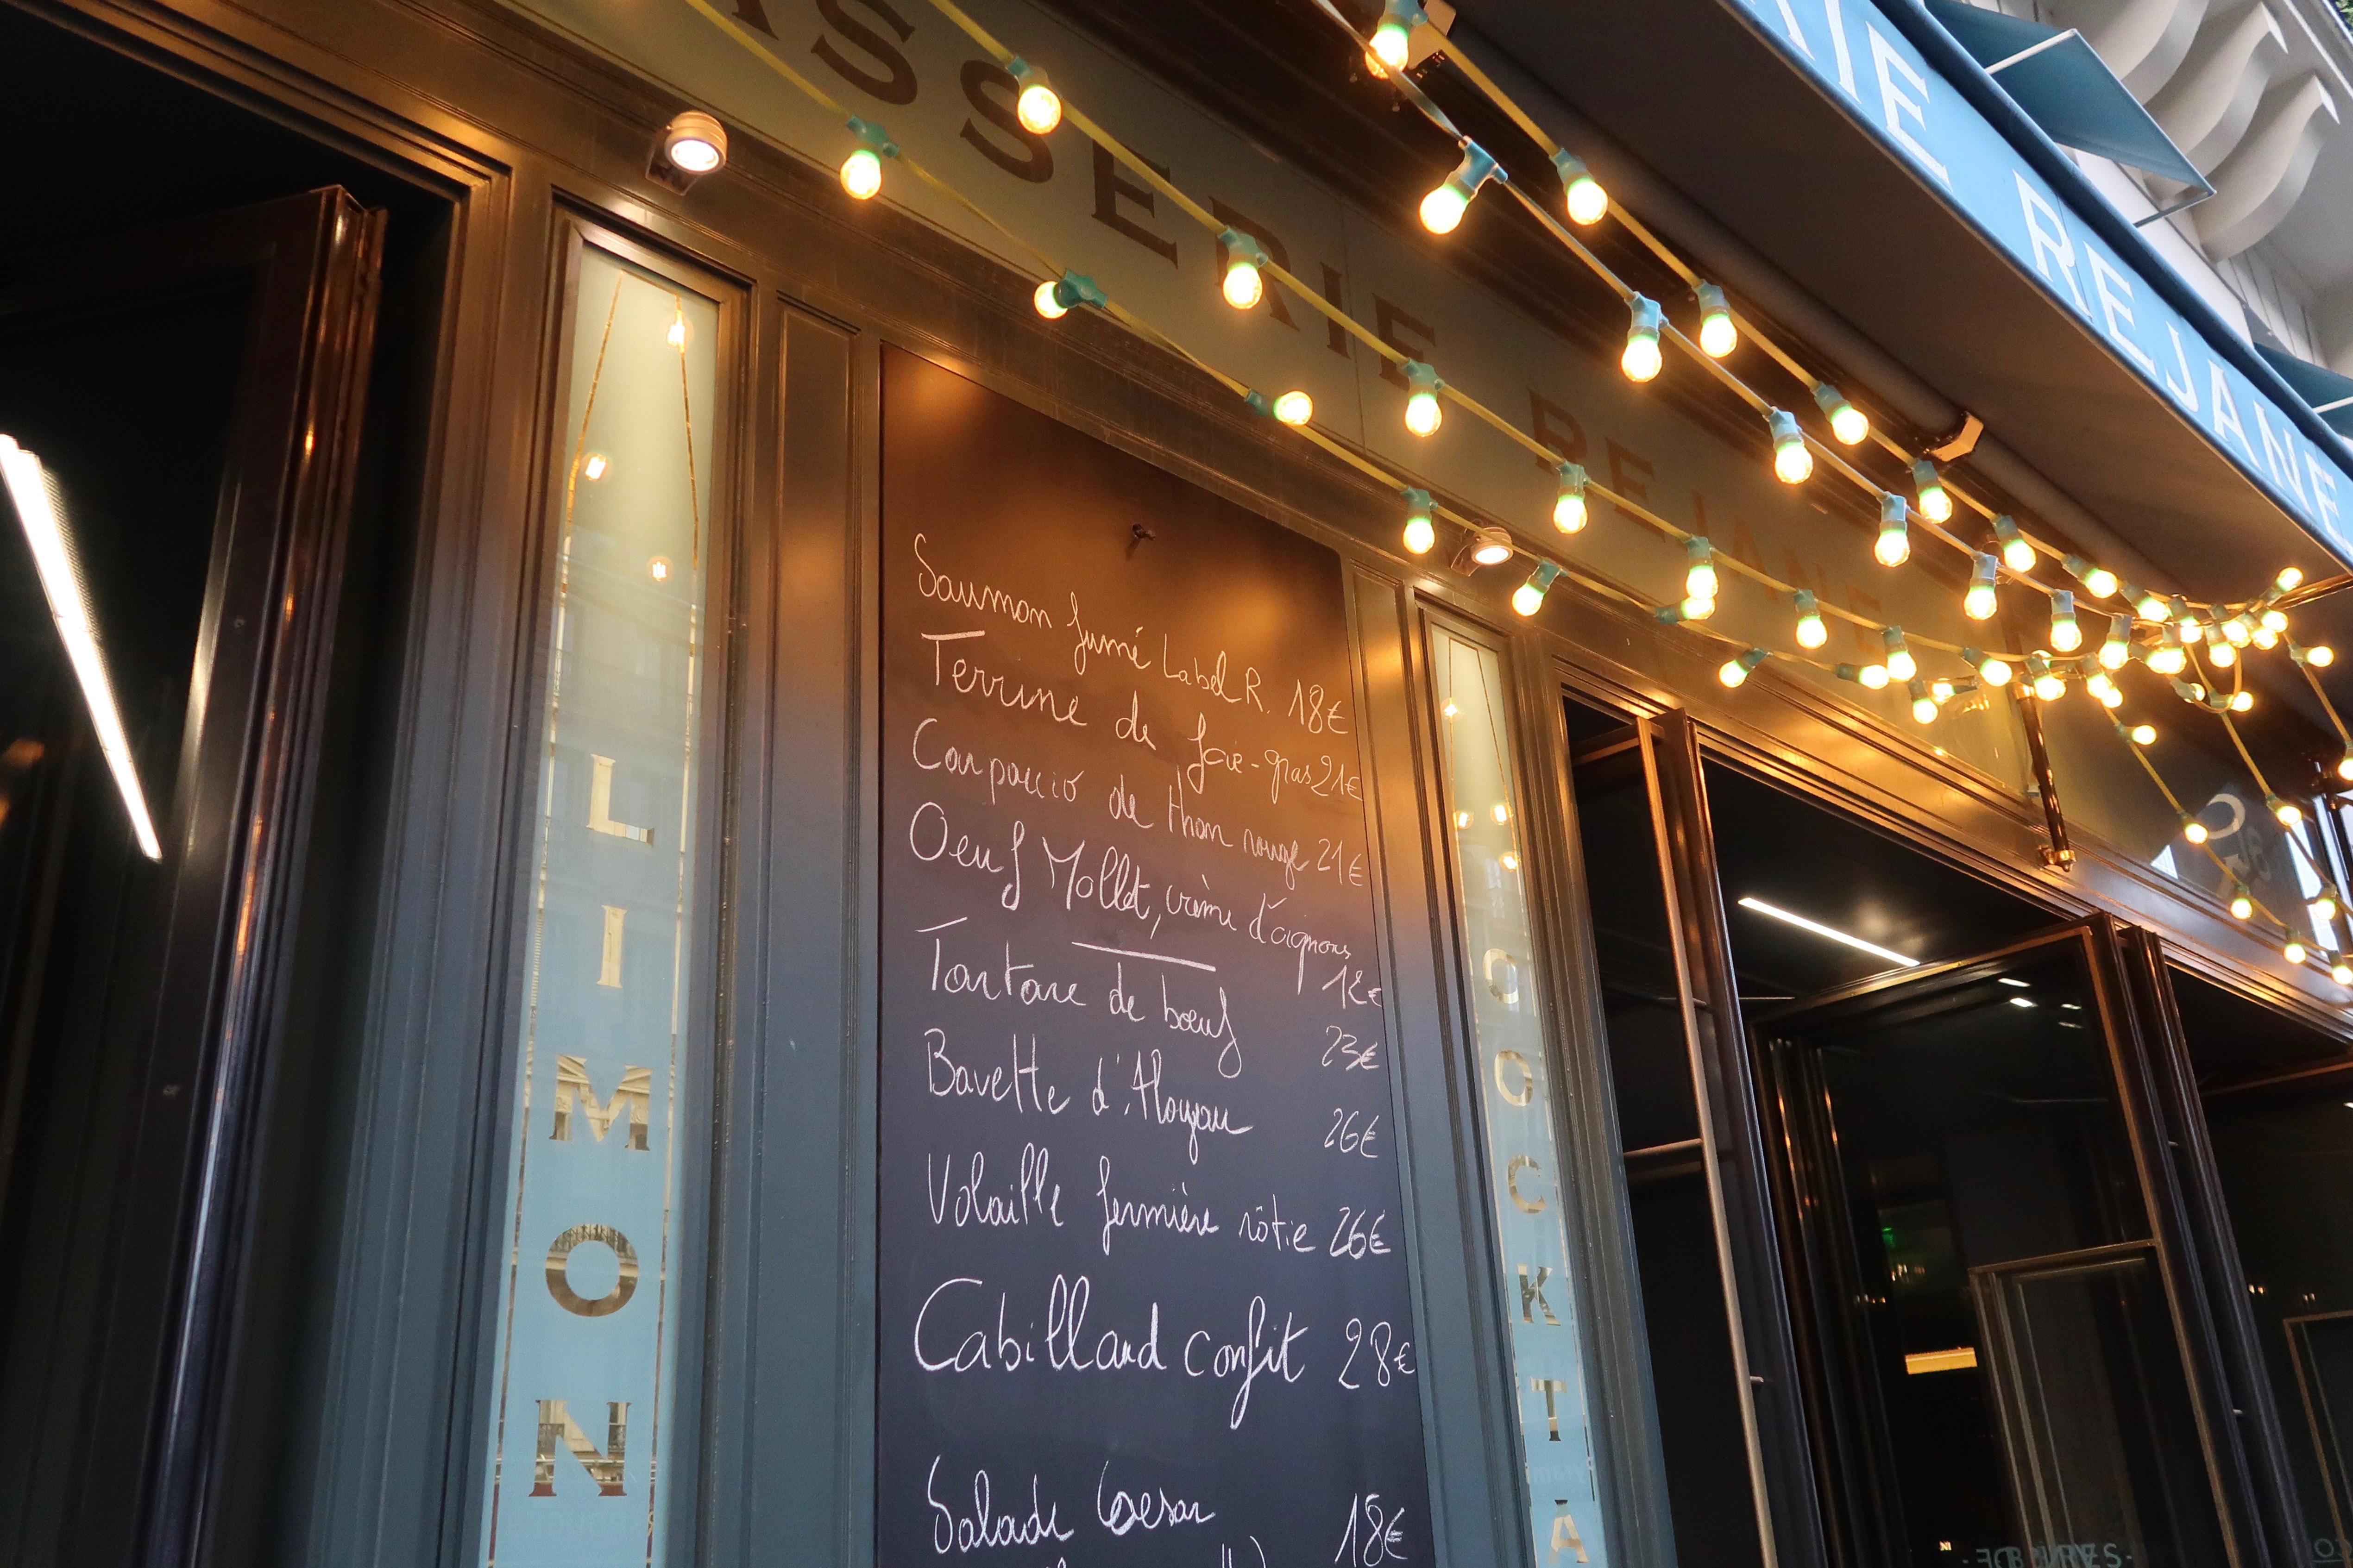 ASSERIE REJANE
RIE REJANE
Saumon fumé Label R. 18€
Terrine de foie-gras 21€
Carpaccio de thon rouge 21€
Oeuf Mollet, crème d'oignons
12€
Tartare de bœuf 23€
Bavette d'Aloyau 26€
Volaille fermière rôtie 26€
Cabillaud confit 28€
Salade Caesar 18€
LIMON
COCKTA